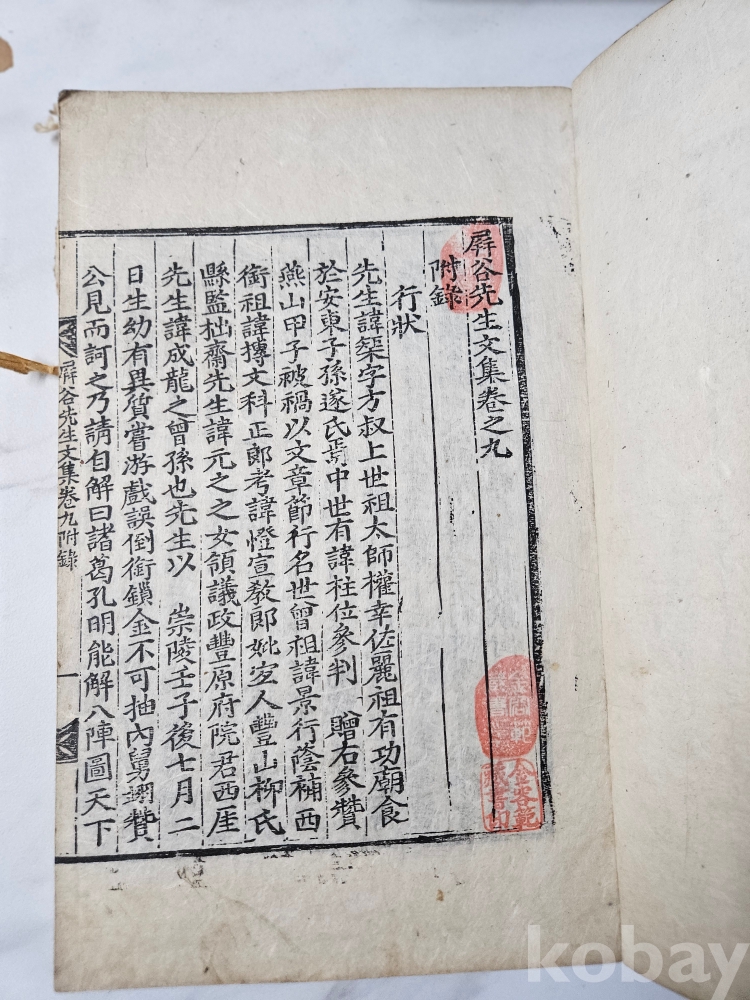 屛谷先生文集卷之九
附錄
行狀
先生諱榘字方叔上世祖太師權幸佐麗祖有功廟食
於安東子孫遂氏焉中世有諱柱位參判 贈右參贊
燕山甲子被禍以文章節行名世曾祖諱景行蔭補西
衛祖諱摶文科正郞考諱憕宣敎郞妣宜人豐山柳氏
縣監拙齋先生諱元之之女領議政豐原府院君西厓
先生諱成龍之曾孫也先生以 崇陵壬子後七月二
日生幼有異質嘗游戲誤倒銜鎖金不可抽內舅翊贊
公見而訶之乃請自解曰諸葛孔明能解八陣圖天下
屛谷先生文集卷九附錄
一
kobay